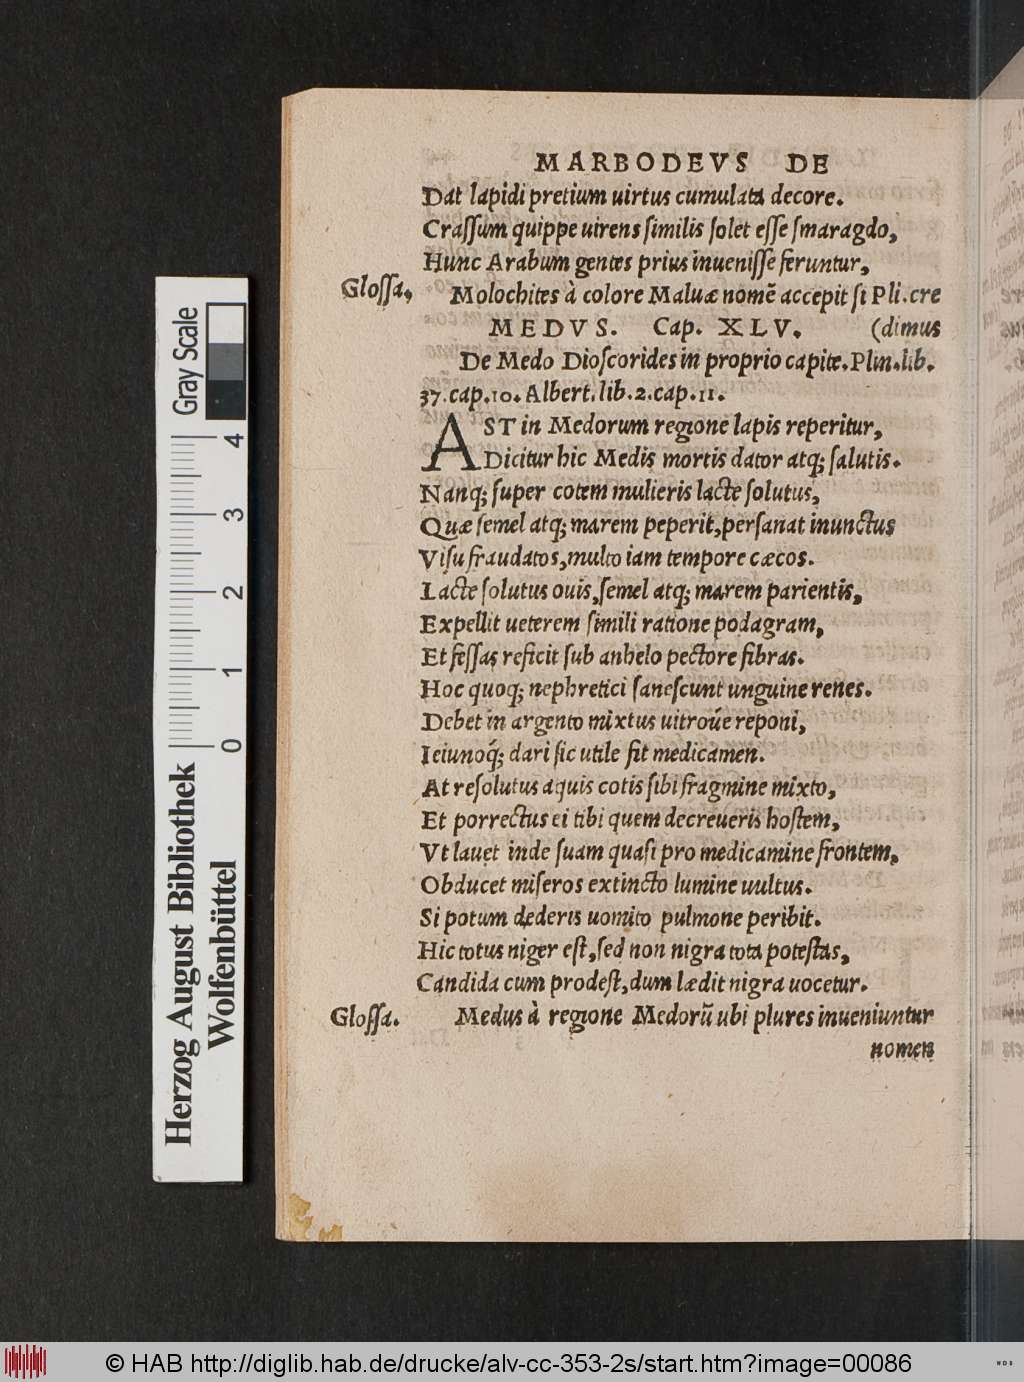 MARBODEVS DE
Dat lapidi pretium uirtus cumulata decore.
Craſſum quippe uirens ſimilis ſolet eſſe ſmaragdo,
Hunc Arabum gentes prius inueniſſe feruntur,
Gloſſa, Molochites à colore Maluæ nomẽ accepit ſi Pli.cre
MEDVS. Cap. XLV. (dimus
De Medo Dioſcorides in proprio capite. Plin.lib.
37.cap.10. Albert.lib.2.cap.11.
AST in Medorum regione lapis reperitur,
Dicitur hic Medis mortis dator atq; ſalutis.
Nanq; ſuper cotem mulieris lacte ſolutus,
Quæ ſemel atq; marem peperit, perſanat inunctus
Viſu fraudatos, multo iam tempore cæcos.
Lacte ſolutus ouis, ſemel atq; marem parientis,
Expellit ueterem ſimili ratione podagram,
Et feſſas reficit ſub anhelo pectore fibras.
Hoc quoq; nephretici ſaneſcunt unguine renes.
Debet in argento mixtus uitroúe reponi,
Ieiunoq́; dari ſic utile fit medicamen.
At reſolutus aquis cotis ſibi fragmine mixto,
Et porrectus ei tibi quem decreueris hoſtem,
Vt lauet inde ſuam quaſi pro medicamine frontem,
Obducet miſeros extincto lumine uultus.
Si potum dederis uomito pulmone peribit.
Hic totus niger eſt, ſed non nigra tota poteſtas,
Candida cum prodeſt, dum lædit nigra uocetur.
Gloſſa. Medus à regione Medorũ ubi plures inueniuntur
nomen
Gray Scale
4
3
2
1
0
Herzog August Bibliothek
Wolfenbüttel
© HAB http://diglib.hab.de/drucke/alv-cc-353-2s/start.htm?image=00086